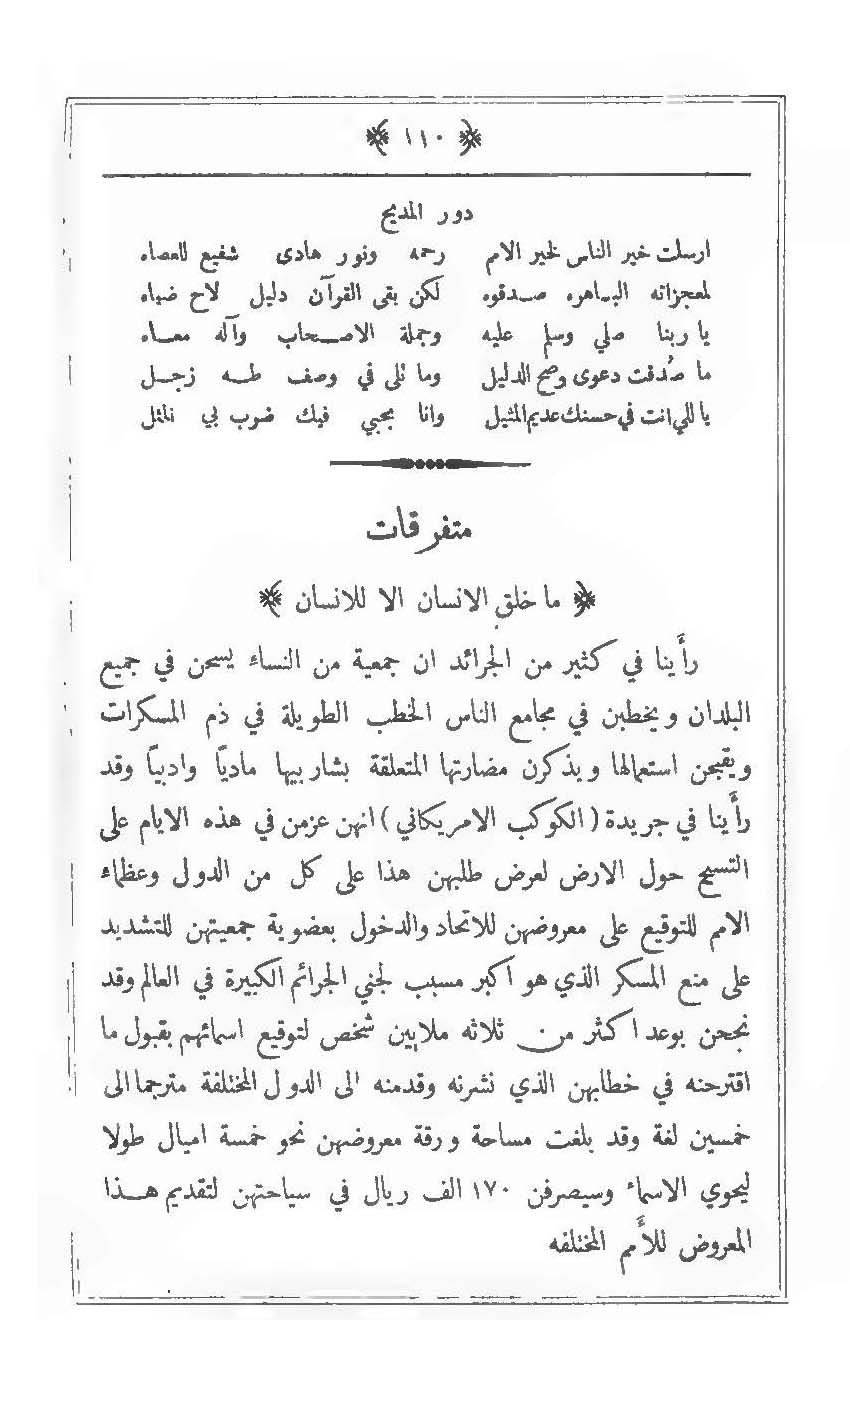 ﴿ ١١٠ ﴾
دور المديح
ارسلت خير الناس لخير الام رحمه ونور هادى شفيع للعصاه
لمعجزاته الباهره صدقوه لكن بقى القرآن دليل لاح ضياه
يا ربنا صلي وسلم عليه وجملة الاصحاب وآله معاه
ما صُدقت دعوى وصح الدليل وما تُلى في وصف طه زجل
يا للي انت في حسنك عديم المثيل وانا بحبي فيك ضرب بي المثل
متفرقات
﴿ ما خلق الانسان الا للانسان ﴾
رأينا في كثير من الجرائد ان جمعية من النساء يسحن في جميع
البلدان ويخطبن في مجامع الناس الخطب الطويلة في ذم المسكرات
ويقبحن استعمالها ويذكرن مضارتها المتعلقة بشاربيها مادياً وادبياً وقد
رأينا في جريدة (الكوكب الامريكاني) انهن عزمن في هذه الايام على
التسيح حول الارض لعرض طلبهن هذا على كل من الدول وعظماء
الامم للتوقيع على معروضهن للاتحاد والدخول بعضوية جمعيتهن للتشديد
على منع المسكر الذي هو اكبر مسبب لجني الجرائم الكبيرة في العالم وقد
نجحن بوعد اكثر من ثلاثه ملايين شخص لتوقيع اسمائهم بقبول ما
اقترحنه في خطابهن الذي نشرنه وقدمنه الى الدول المختلفة مترجما الى
خمسين لغة وقد بلغت مساحة ورقة معروضهن نحو خمسة اميال طولا
ليحوي الاسماء وسيصرفن ١٧٠ الف ريال في سياحتهن لتقديم هذا
المعروض للأمم المختلفه